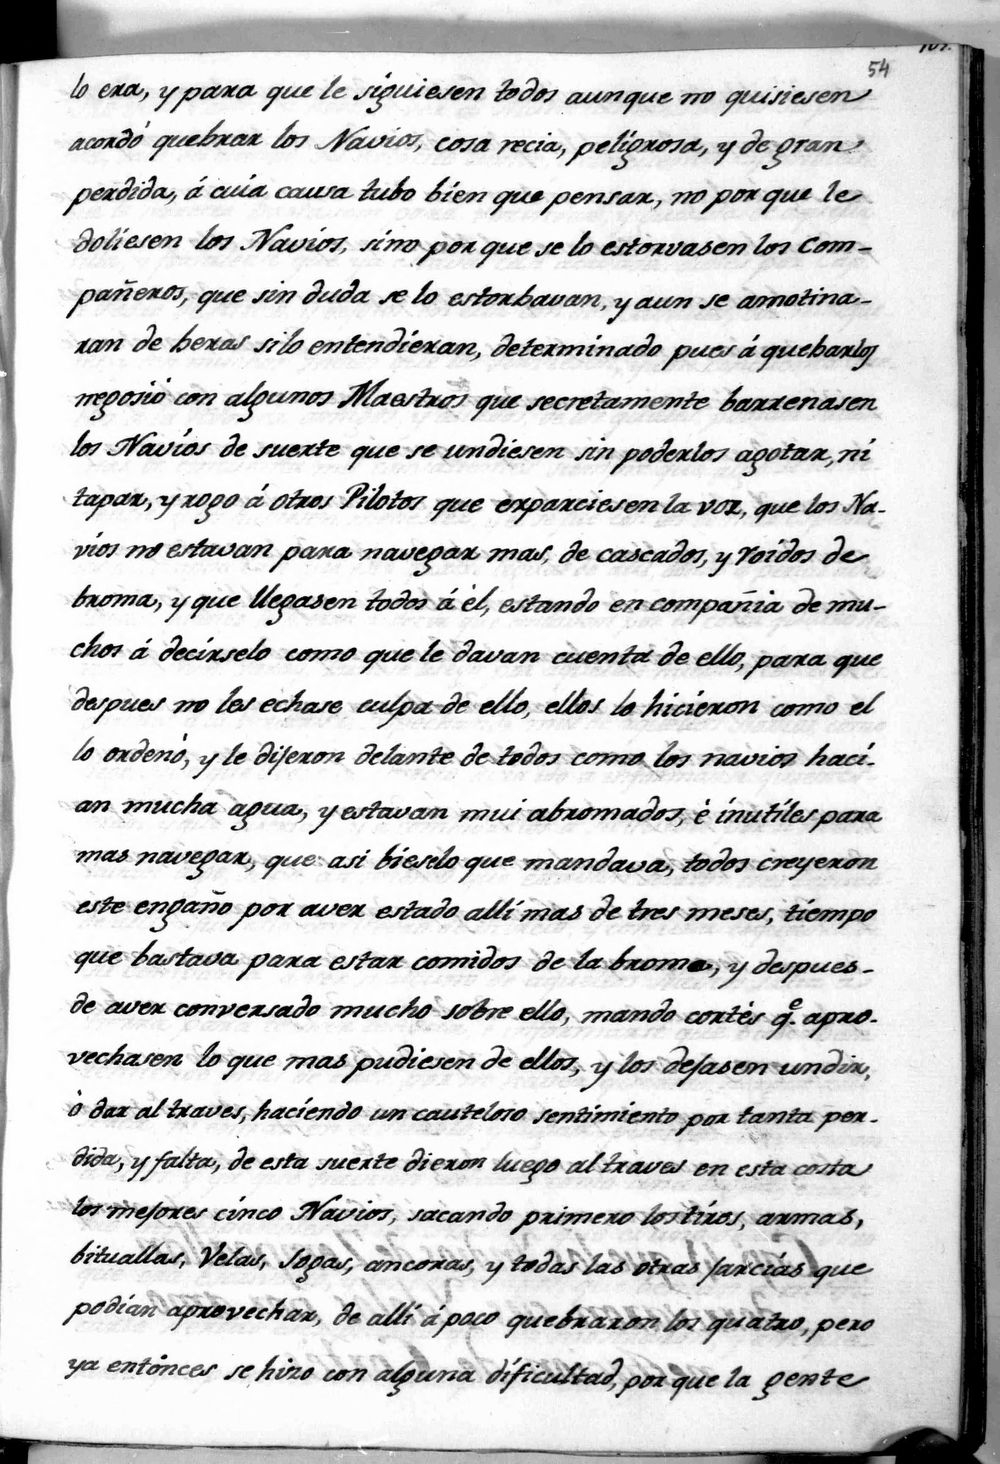 54
lo era, y para que le siguiesen todos aunque no quisiesen
acordó quebrar los Navios, cosa recia, peligrosa, y de gran
perdida, á cuia causa tubo bien que pensar, no por que le
doliesen los Navios, sino por que se lo estorvasen los Com-
pañeros, que sin duda se lo estorbavan, y aun se amotina-
ran de beras si lo entendieran, determinado pues á quebarlos
negosió con algunos Maestros que secretamente barrenasen
los Navios de suerte que se undiesen sin poderlos agotar, ni
tapar, y rogo á otros Pilotos que exparciesen la voz, que los Na-
vios no estavan para navegar mas, de cascados, y roidos de
broma, y que llegasen todos á èl, estando en compañia de mu-
chos á decirselo como que le davan cuenta de ello, para que
despues no les echase culpa de ello, ellos lo hicieron como el
lo ordenó, y le dijeron delante de todos como los navios haci-
an mucha agua, y estavan mui abromados, è inutiles para
mas navegar, que asi bieselo que mandava, todos creyeron
este engaño por aver estado allí mas de tres meses, tiempo
que bastava para estar comidos de la broma, y despues-
de aver conversado mucho sobre ello, mando cortès q.e apro-
vechasen lo que mas pudiesen de ellos, y los dejasen undir,
ò dar al traves, haciendo un cauteloso sentimiento por tanta per-
dida, y falta, de esta suerte dieron luego al traves en esta costa
los mejores cinco Navios, sacando primero los tiros, armas,
bituallas, Velas, Sogas, ancoras, y todas las otras jarcias que
podian aprovechar, de allí á poco quebraron los quatro, pero
ya entònces se hizo con alguna dificultad, por que la gente